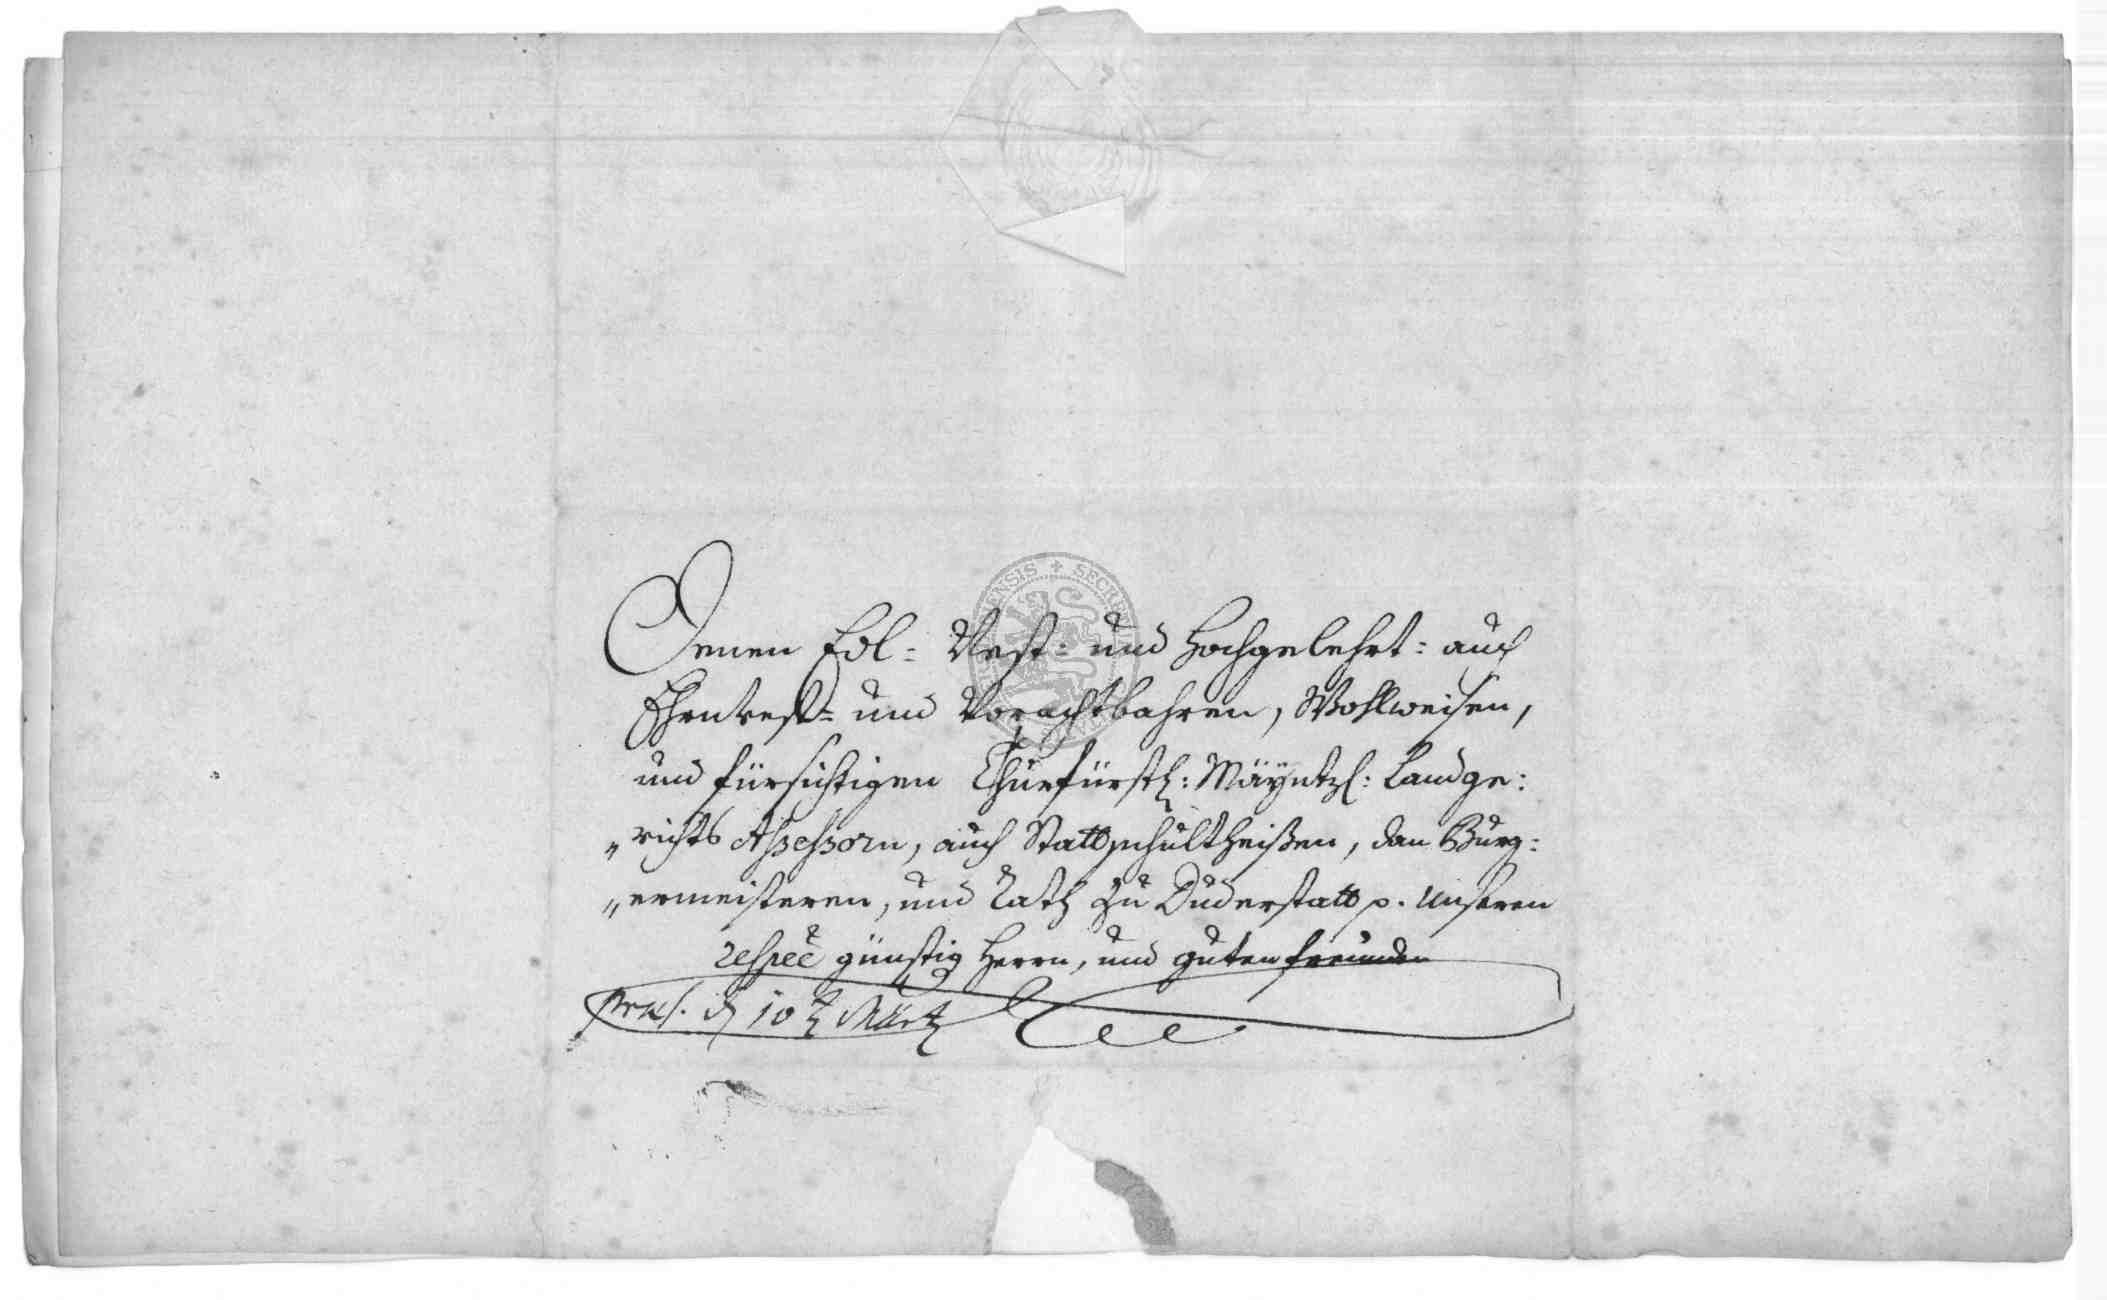 Denen Edl: Vest: und Hochgelehrt: auch
Ehrnvest= und Vorachtbahren, Wohlweisen,
und fürsichtigen Churfürstl: Mäyntzl: Landge:
"richts Assessorn, auch Stattschultheißen, dan Burg:
"ermeisteren, und Rath zu Duderstatt p. Unseren
respec günstig Herrn, und guten freunden
praes. d 10t Märtz